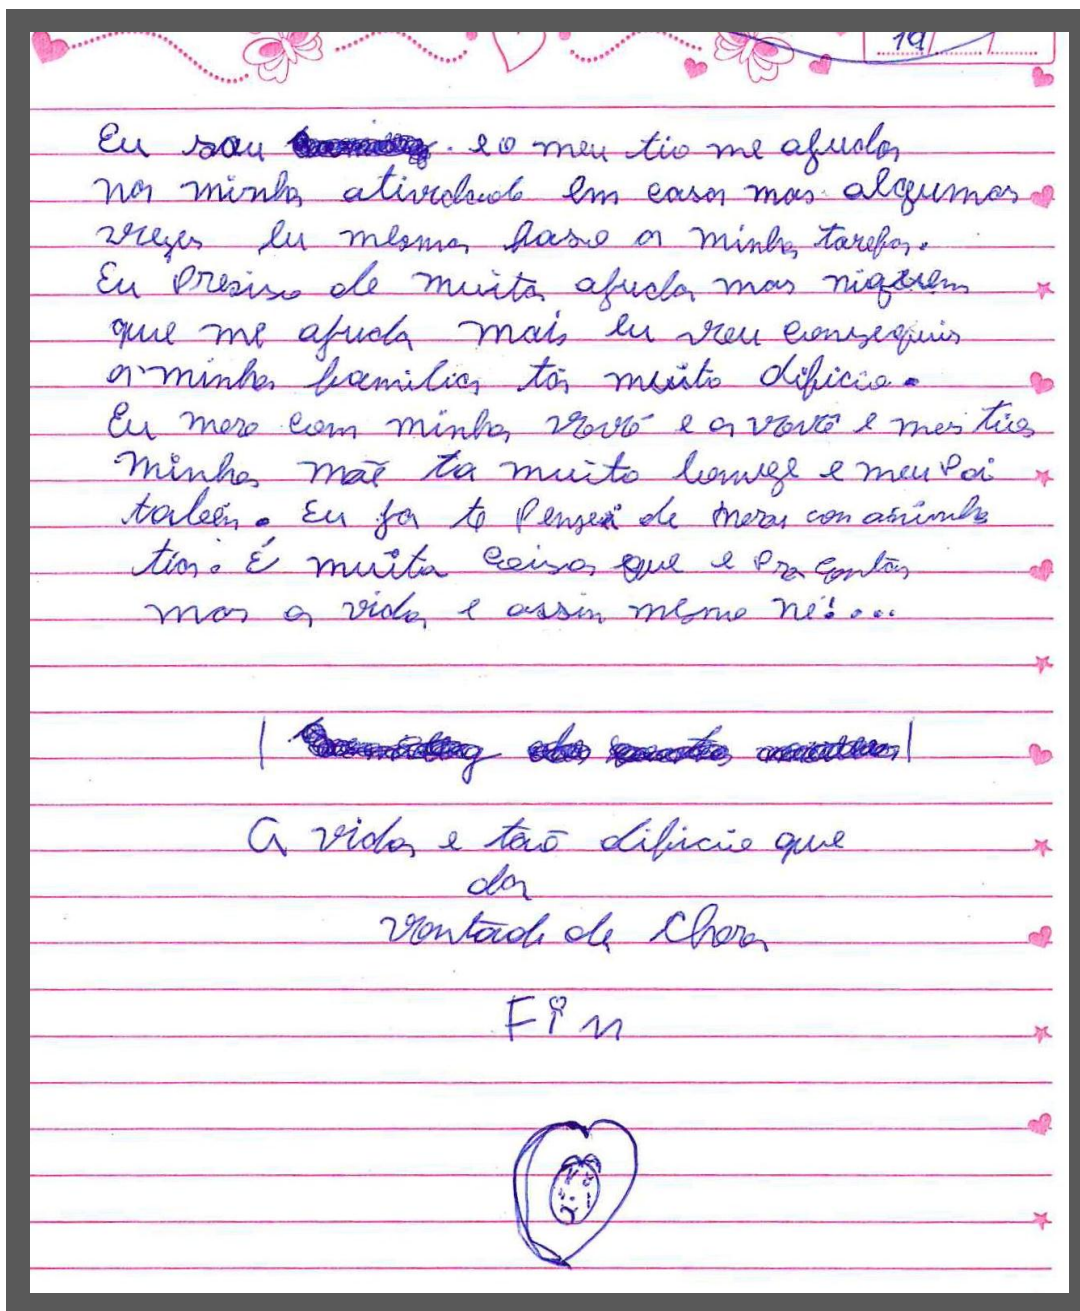 19
Eu sou e o meu tio me ajuda
na minha atividade em casa mas algumas
vezes eu mesma faso a minha tarefa.
Eu presiso de muita ajuda mas niguem
que me ajuda mais eu veu conseguir
a minha familia tá muito dificio.
Eu moro com minha vovó e o vovô e meus tios
minha mãe ta muito lomge e meu Pai
tabein. Eu ja te pensei de mora con a minha
tia. É muita coisa que e pra contar
mas a vida e assin mesmo né!...
A vida e taõ dificio que
da
vontade de chora
Fin